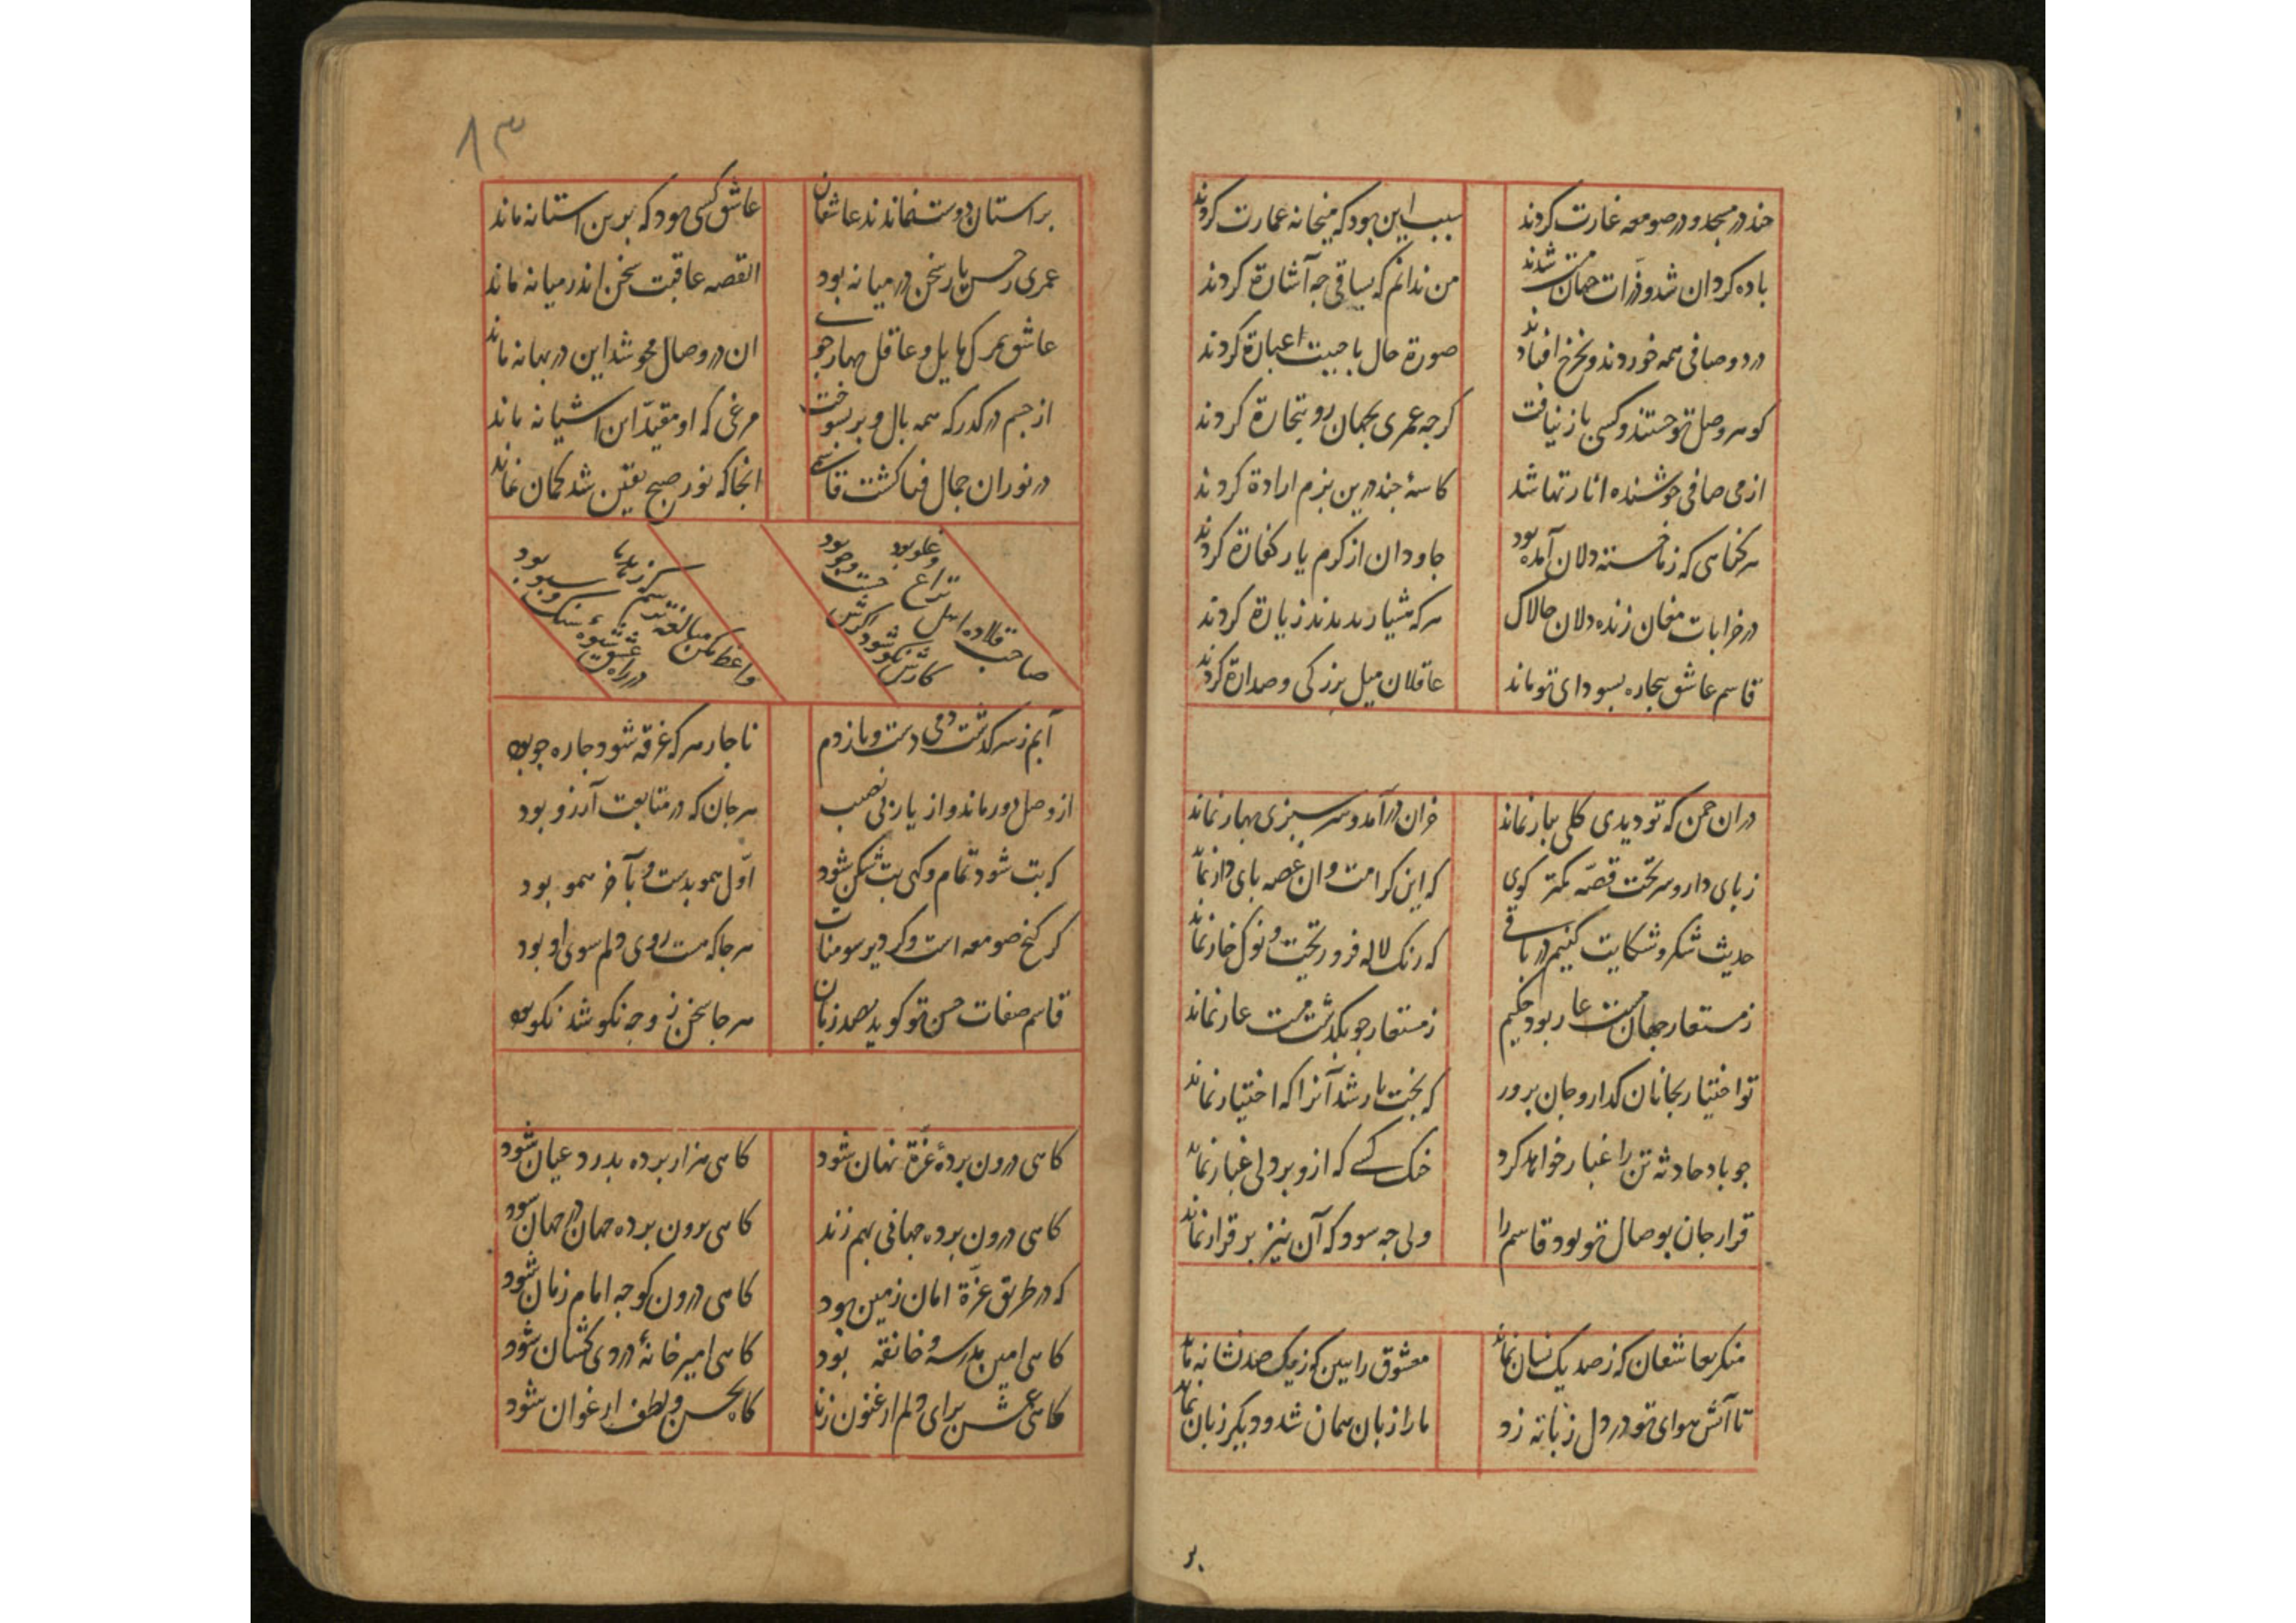 چند در مسجد و در صومعه غارت کردند سبب این بود که میخانه عمارت کردند
باده کردان شد و ذرات جهان مست شدند من ندانم که بساقی چه اشارة کردند
درد و صافی همه خوردند و بچرخ افتادند صورة حال باحبیت اعبارة کردند
کوهر وصل تو جستند و کسی باز نیافت کرچه عمری بجهان رو بتجارة کردند
از می صافی جوشنده انا رتها شد کاسهٔ چند درین بزم ارادة کردند
هر کناهی که ز ما خسته دلان آمده بود جاودان از کرم یار کفارة کردند
در خرابات مغان زنده دلان چالاک هر که هشیار بدیدند زیارة کردند
قاسم عاشق بیچاره بسودای تو ماند عاقلان میل بزرکی و صدارة کردند
دران چمن که تو دیدی کلی ببار نماند خزان درآمد و سرسبزی بهار نماند
ز پای دار و سر تخت قصه کمتر کوی که این کرامت وان غصه پای دار نماند
حدیث شکر و شکایت کنیم در باقی که رنک لاله فرو ریخت و نوک خار نماند
ز مستعار جهان هست عار بود حکیم ز مستعار چو بکذشت هست عار نماند
تو اختیار بجانان کذار و جان پرور که بخت یار شد آنرا که اختیار نماند
چو باد حادثه تن را غبار خواهد کرد خنک کسی که ازو بر دلی غبار نماند
قرار جان بوصال تو بود قاسم را ولی چه سود که آن نیز بر قرار نماند
منکر بعاشقان که ز صد یک نشان نماند معشوق را ببین کز یک صد نشانه ماند
تا آتش هوای تو در دل زبانه زد ما را زبان همان شد و دیگر زبان نماند
بر
۸۳
بر استان دوست نماندند عاشقان عاشق کسی بود که برین استانه ماند
عمری ز حسن یار سخن در میانه بود القصه عاقبت سخن اندر میانه ماند
عاشق بمرک مایل و عاقل بهار جوست ان در وصال محو شد این در بهانه ماند
از جسم درکذر که همه بال و پر بسوخت مرغی که او مقید این اشیانه ماند
در نور ان جمال فنا کشت قاسمی انجا که نور صبح یقین شد کمان نماند
صاحب قلاده اهل نزاع و غلو بود
کارش نکو شود اکرش جست و جو بود
واعظ مکن مبالغه ترسم که زهد ما
در راه عشق شیوهٔ سنک و سبو بود
آبم ز سر کذشت دمی دست و پا زدم ناچار هر که غرقه شود چاره جو بود
از وصل دور ماند و از یار بی نصیب هر جان که در متابعت آرزو بود
که بت شود تمام و کهی بت شکن شود اول همو بدست و بآخر همو بود
کر کنج صومعه است و کر دیر سومنات هر جا که هست روی دلم سوی او بود
قاسم صفات حسن تو کوید بصد زبان هر جا سخن ز وجه نکو شد نکو بود
کاهی درون پردهٔ عزة نهان شود کاهی هزار پرده بدرد عیان شود
کاهی درون پرده جهانی بهم زند کاهی برون پرده جهان در جهان شود
که در طریق عزة امان زمین بود کاهی درون کوچه امام زمان شود
کاهی امین مدرسه و خانقه بود کاهی امیر خانهٔ دردی کشان شود
کاهی عشق برای دلم ارغنون زند کاه بحسن و لطف ارغوان شود